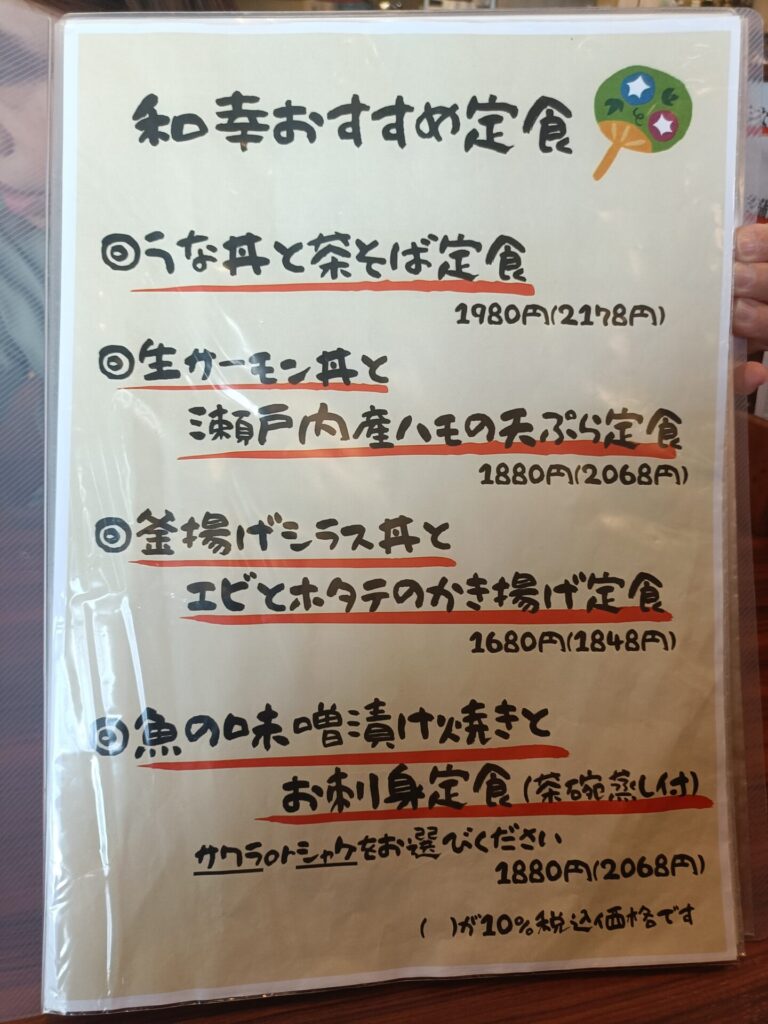 和幸おすすめ定食
◎うな丼と茶そば定食
1980円(2178円)
◎生サーモン丼と
瀬戸内産ハモの天ぷら定食
1880円(2068円)
◎釜揚げシラス丼と
エビとホタテのかき揚げ定食
1680円(1848円)
◎魚の味噌漬け焼きと
お刺身定食(茶碗蒸し付)
サワラorシャケをお選びください
1880円(2068円)
( )が10%税込価格です